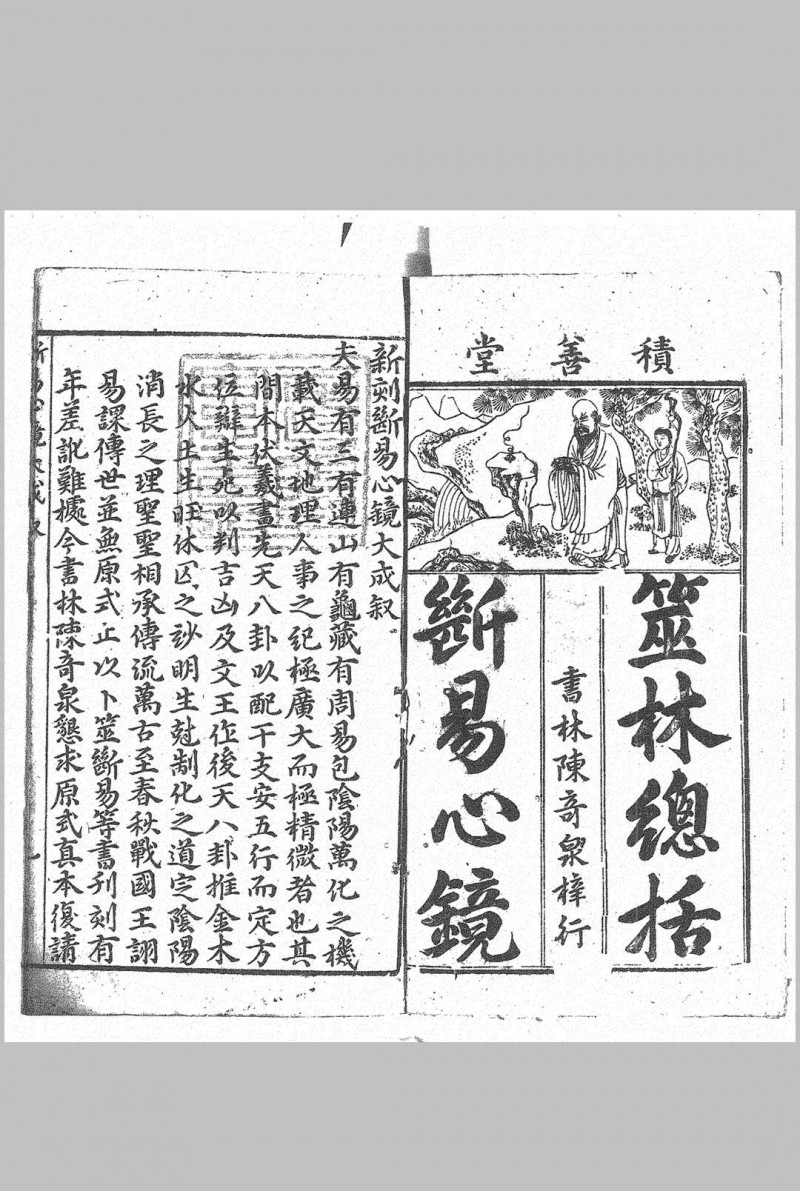 積善堂
筮林總括
書林陳奇泉梓行
斷易心鏡
新刻斷易心鏡大成叙
夫易有三有連山有龜藏有周易包隂陽萬化之機
載天文地理人事之紀極廣大而極精微者也其
間本伏羲畫先天八卦以配干支安五行而定方
位辯生死以判吉凶及文王作後天八卦推金木
水火土生旺休囚之妙明生尅制化之道定隂陽
消長之理聖聖相承傳流萬古至春秋戰國王詡
易課傳世並無原式止以卜筮斷易等書刋刻有
年差訛難據今書林陳奇泉懇求原式真本復請